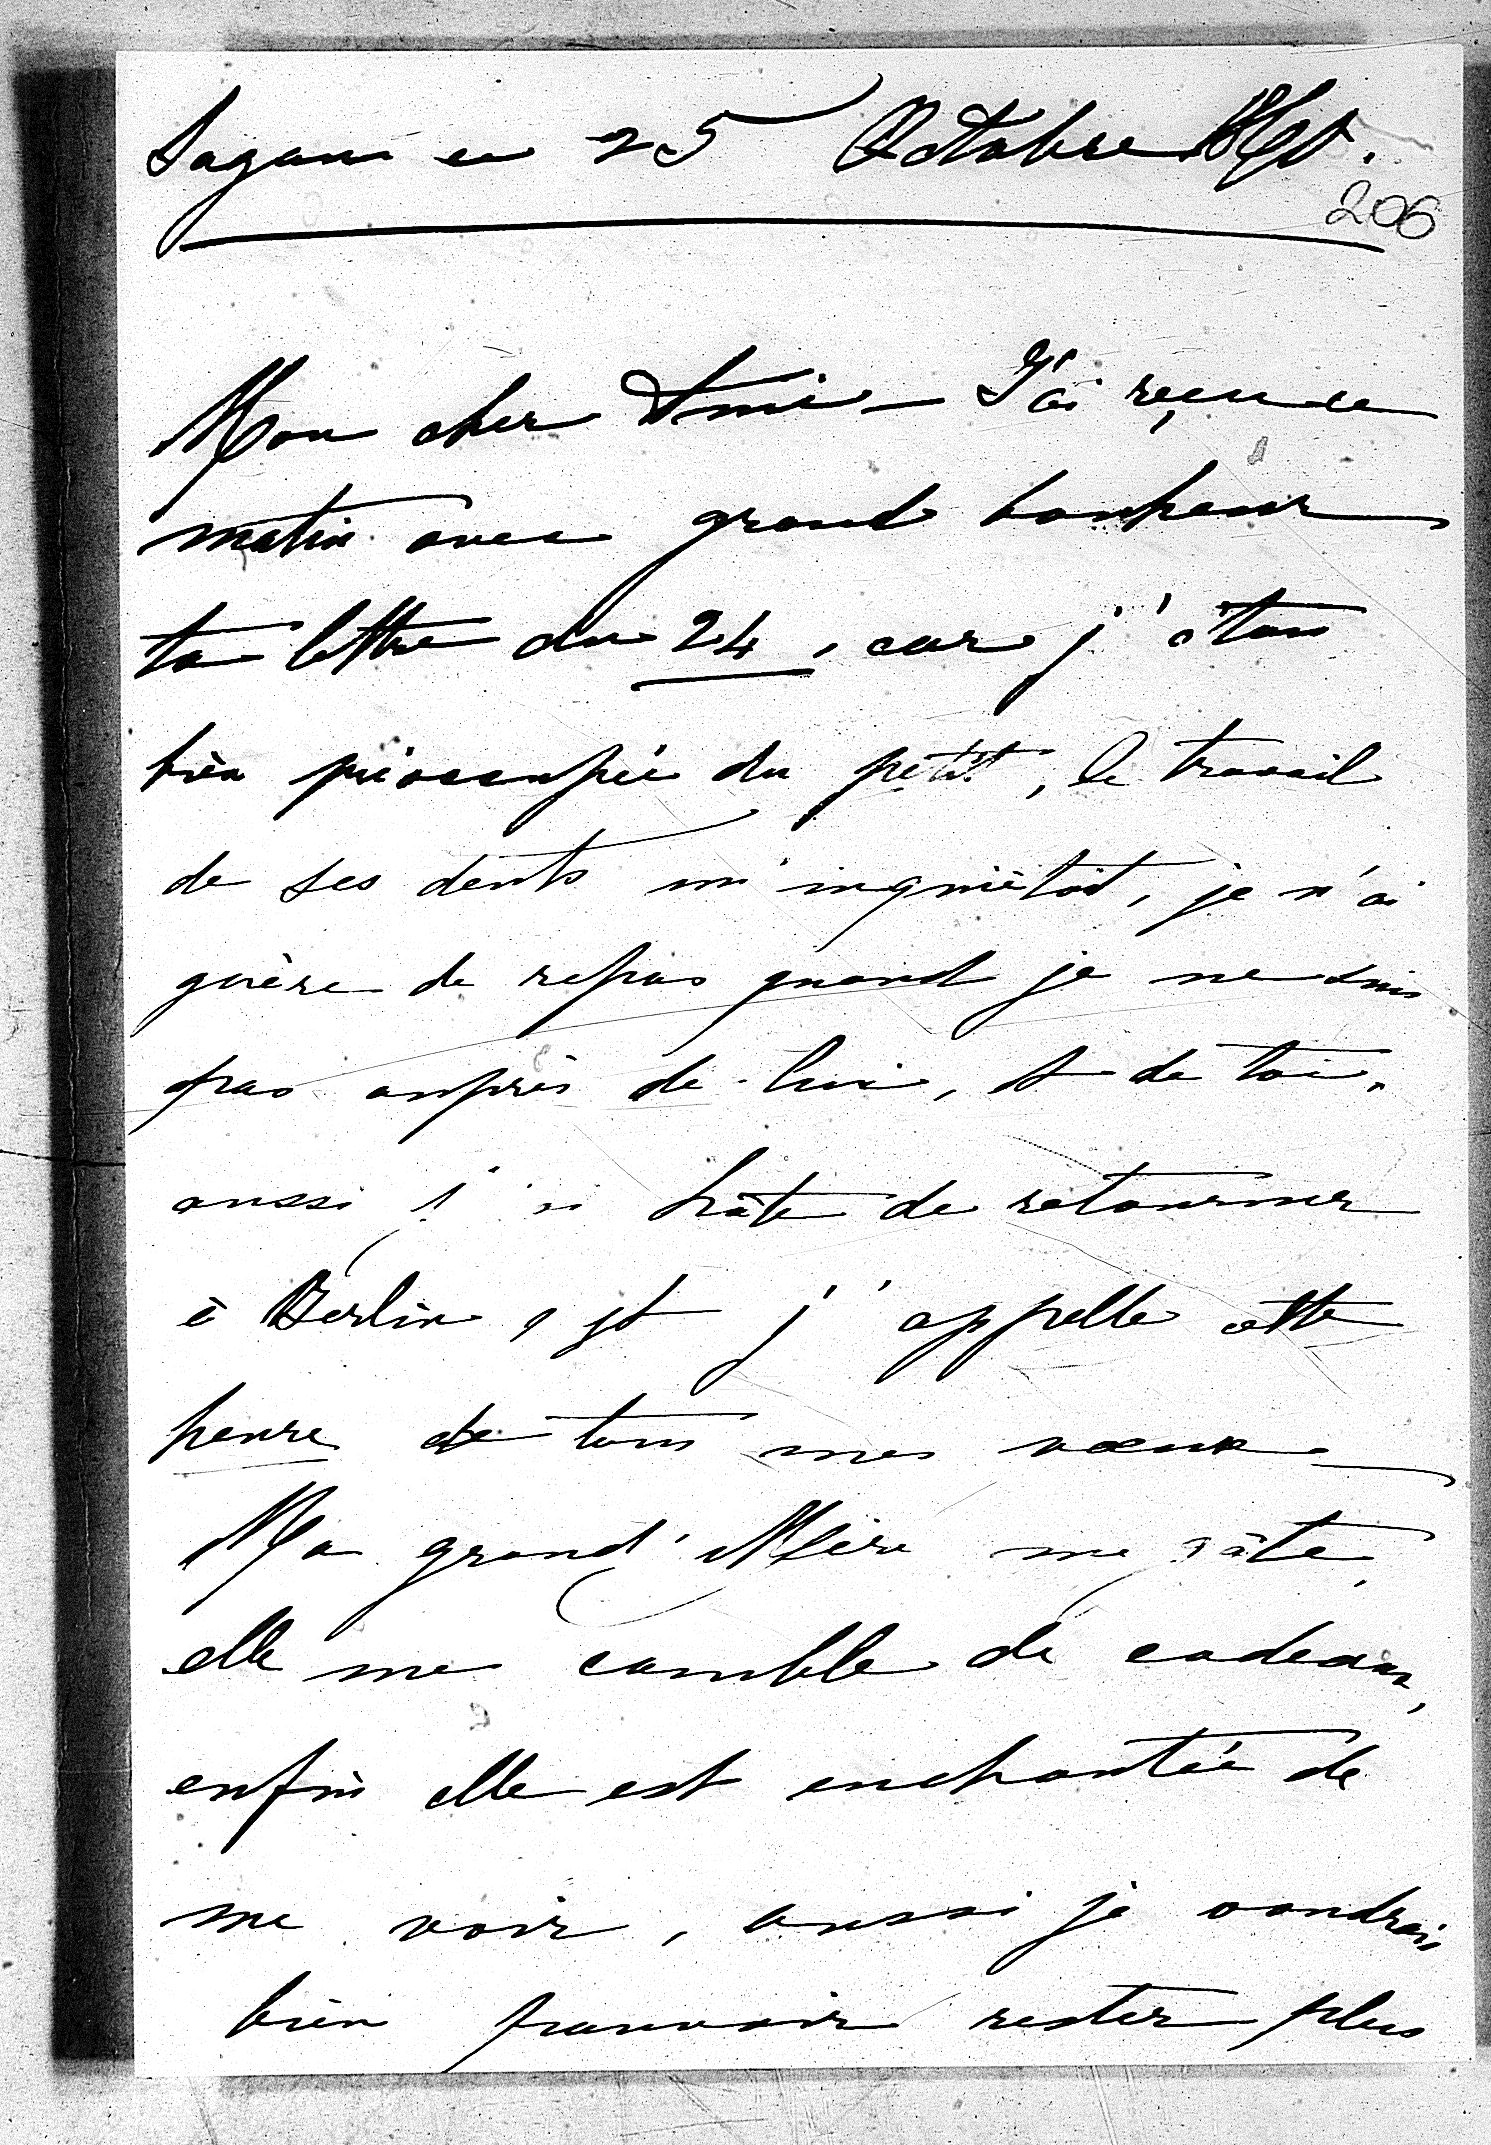 Sagan ce 25 Octobre
206
Mon cher Ami – J'ai reçu ce
matin avec grand bonheur
ta lettre du 24, car j'étais
bien préoccupée du petit, le travail
de ses dents m'inquiètait, je n'ai
guère de repos quand je ne suis
pas auprès de lui, et de toi.
aussi j'ai hâte de retourner
à Berlin, et j'appelle cette
heure de tous mes vœux –
Ma grand'Mère me gâte,
elle me comble de cadeaux,
enfin elle est enchantée de
me voir, aussi je voudrais
bien pouvoir rester plus